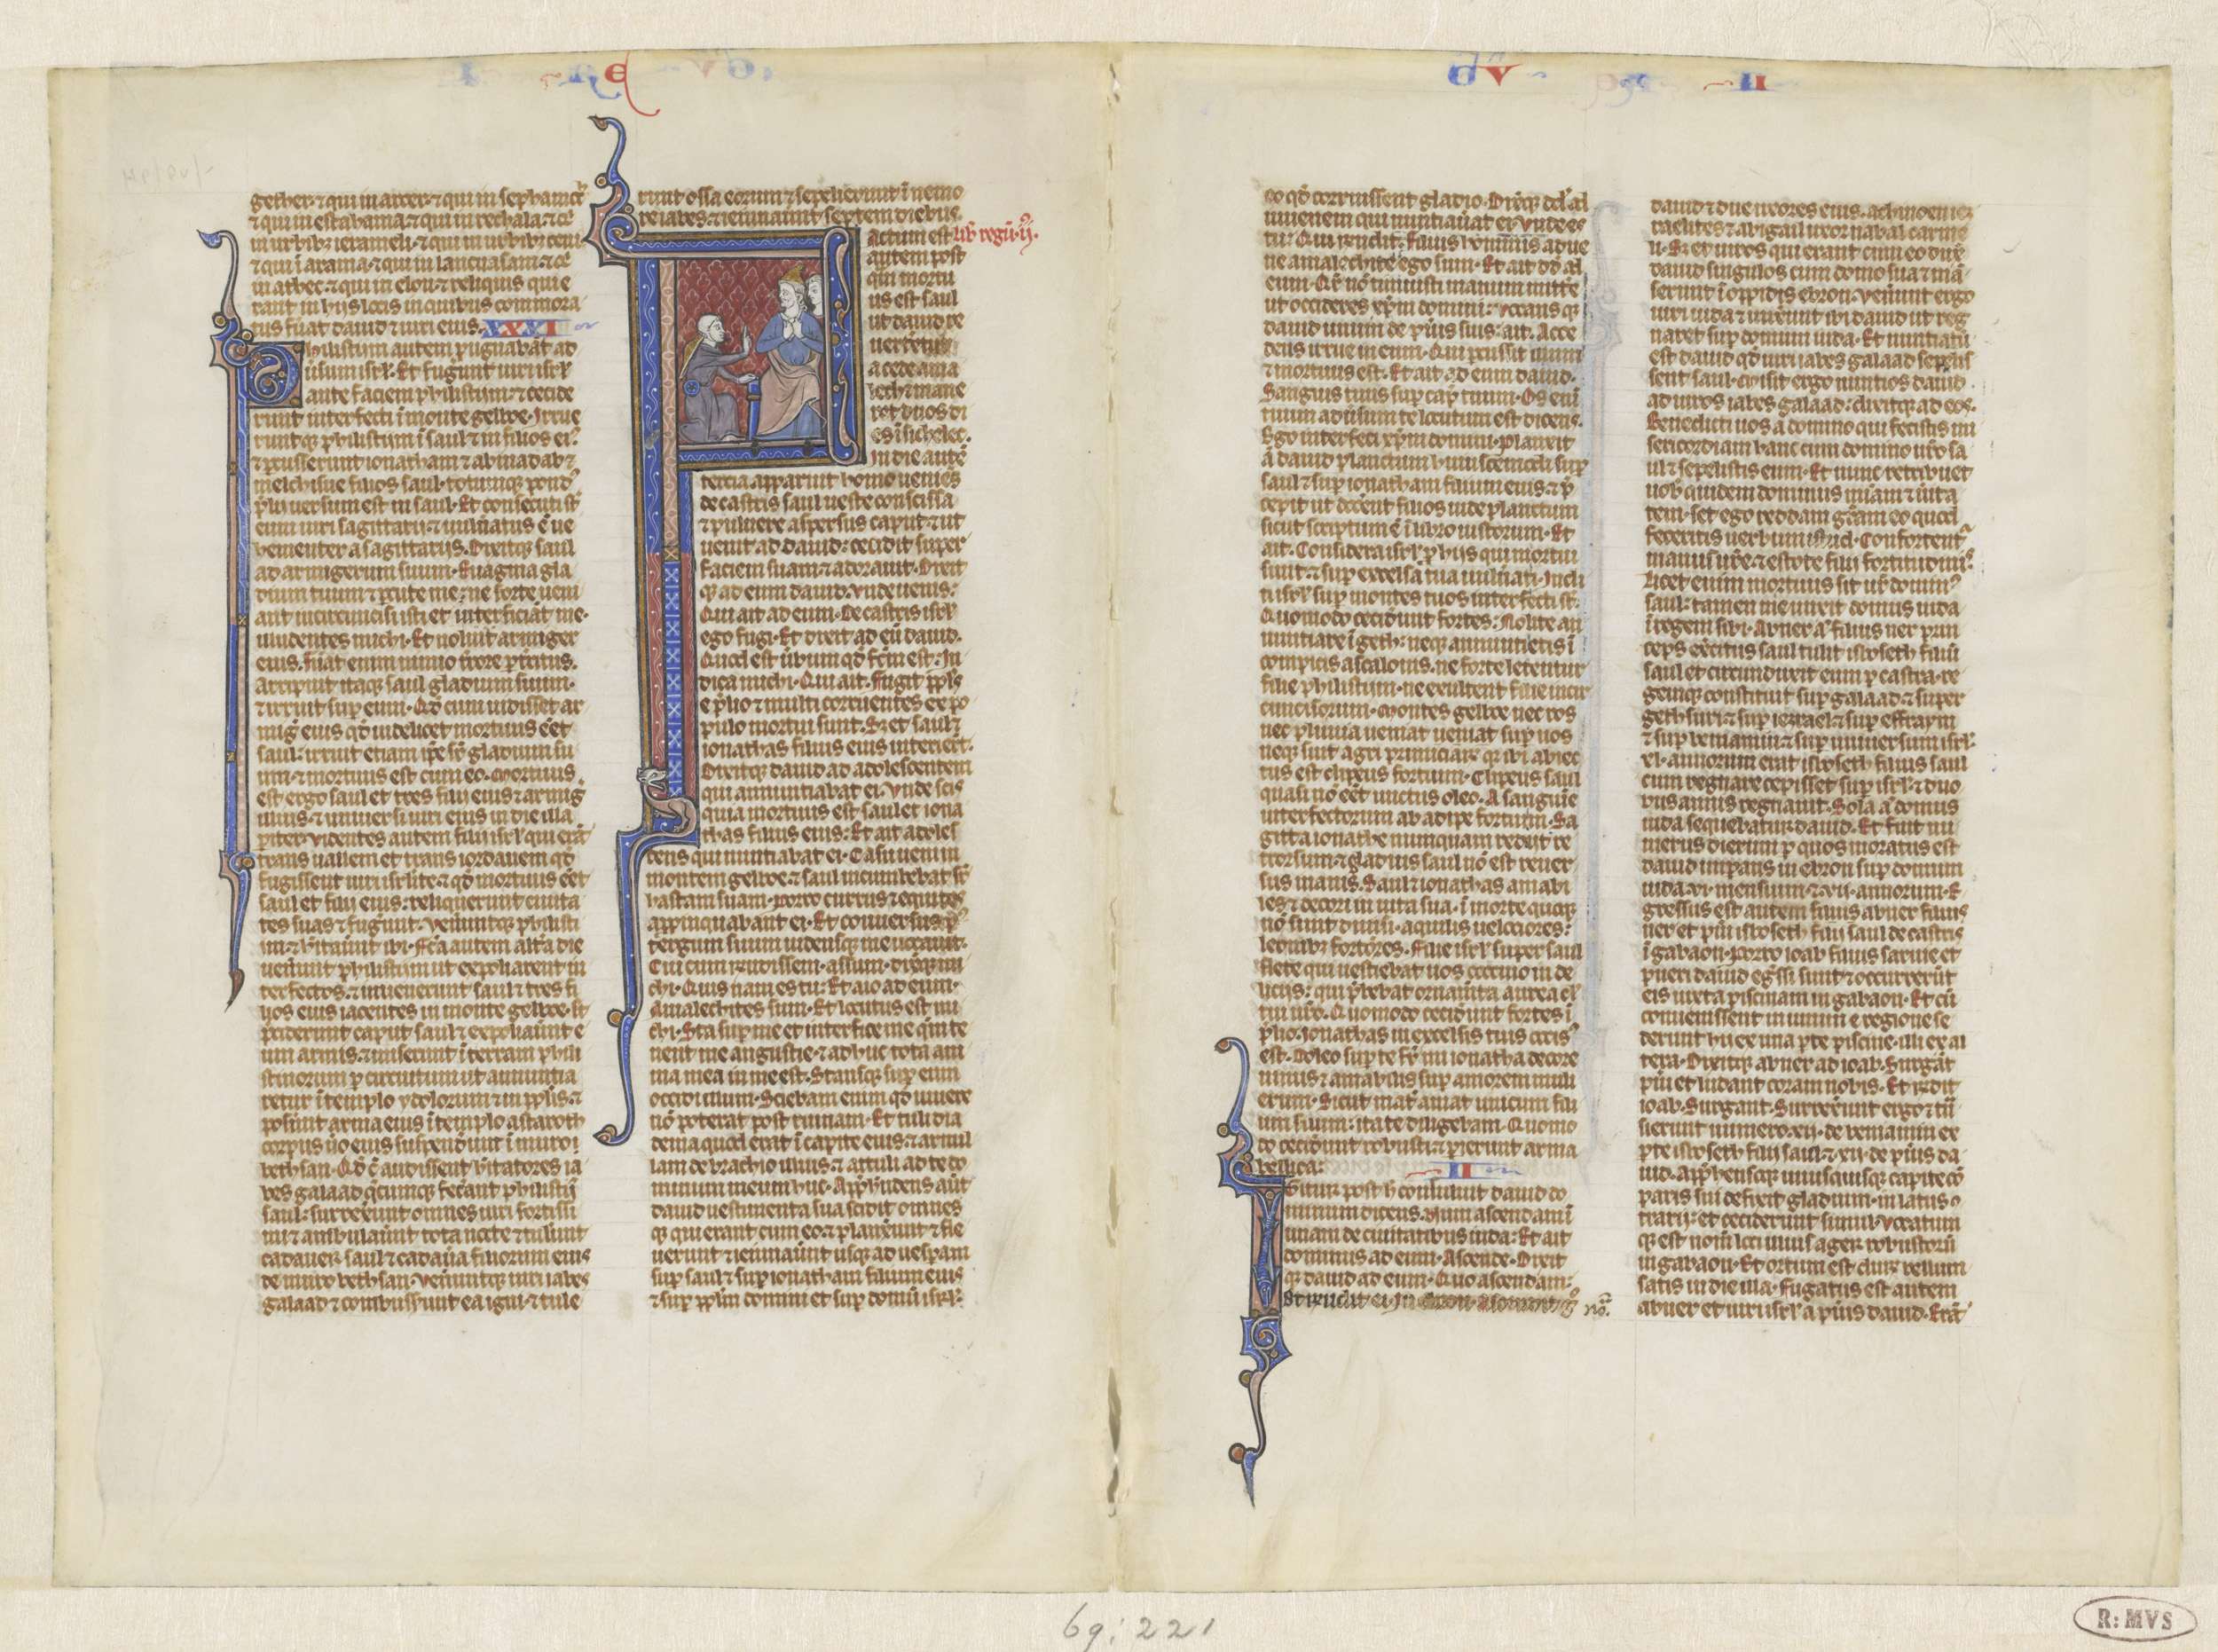 gether ⁊ qui in aroer ⁊ qui in sephamoth
⁊ qui in estahama ⁊ qui in rechala ⁊
in urbib; ierameli ⁊ qui in urbib; ceni
⁊ qui ī arama ⁊ qui in lancuasam ⁊
in athec ⁊ qui in ebron ⁊ reliquis qui e
rant in hijs locis in quibus commora
tus fuāt dauid ⁊ uiri eius. XXXI
Philistijm autem pugnabāt ad
uersum isrl'. Et fugerunt uiri isrl'
ante faciem philistijm ⁊ cecide
runt interfecti ī monte gelboe. Irrue
runtq; philistijm ī saul ⁊ in filios ei'
⁊ pcusserunt ionatham ⁊ abinadab ⁊
melchisue filios saul. totumq; pond'
plij uersum est in saul. Et consecuti st̄
eum uiri sagittarij ⁊ uulnatus ē ue
hementer a sagittarijs. Dixitq; saul
ad armigerum suum. Euagina gla
dium tuum ⁊ pcute me. ne forte ueni
ant incircumcisi isti et interficiāt me.
illudentes michi. Et noluit armiger
eius. fuāt enim nimio trrore ptritus.
Arripuit itaq; saul gladium suum.
⁊ irruit sup eum. Qd' cum uidisset ar
mig' eius qd' uidelicet mortuus eēt
saul. irruit etiam ipe sr̄ gladium su
um ⁊ mortuus est cum eo. Mortuus
est ergo saul et tres filij eius ⁊ armig'
illius. ⁊ uniuersi uiri eius in die illa
piter. Videntes autem filij isrl' qui erāt
trans uallem et trans iordanem qd'
fugissent uiri isrlite. ⁊ qd' mortuus eēt
saul et filij eius. reliquerunt ciuita
tes suas ⁊ fugunt. Veneruntq; philisti
im ⁊ hitauunt ibi. Fc̄a autem altā die
uenunt philistijm ut expoliarent in
terfectos. ⁊ inuenerunt saul ⁊ tres fi
lios eius iacentes in monte gelboe. Et
pciderunt caput saul ⁊ expoliaunt e
um armis. ⁊ miserunt ī terram phili
stinorum p circuitum ut annuntia
retur ī templo ydolorum ⁊ in pplis. ⁊
posuunt arma eius ī templo astaroth
corpus uo eius suspendunt ī muro
bethsan. Qd' c̄ audissent hitatores ia
bes galaad q̄cumq; fecāt philistij
saul. surrexunt omnes uiri fortissi
mi ⁊ ambulaunt tota nocte ⁊ tulunt
cadauer saul ⁊ cadaua filiorum eius
de muro bethsan. Venuntq; uiri iabes
galaad ⁊ combussunt ea igni. ⁊ tule
runt ossa eorum ⁊ sepelierunt ī nemo
re iabes. ⁊ ieiunaunt septem diebus.
lib' regū .ij.
Factum est
autem post
qm mortu
us est saul
ut dauid re
uertetur
a cede ama
lech. ⁊ mane
ret duos di
es ī sichelec.
In die autē
tercia. apparuit homo ueniēs
de castris saul ueste conscissa
⁊ puluere aspersus caput. ⁊ ut
uenit ad dauid. cecidit super
faciem suam. ⁊ adorauit. Dixit
q; ad eum dauid. Vnde uenis?
Qui ait ad eum. De castris isrl'
ego fugi. Et dixit ad eū dauid.
Quod est ubum qd' fcm̄ est? In
dica michi. Qui ait. Fugit ppls
e plio. ⁊ multi corruentes ex po
pulo mortui sunt. Sz et saul ⁊
ionathas filius eius interierūt.
Dixitq; dauid ad adolescentem
qui annuntiabat ei. Vnde scis
quia mortuus est saul et iona
thas filius eius? Et ait adoles
cens qui nuntiabat ei. Casu ueni in
montem gelboe. ⁊ saul incumbebat sr̄
hastam suam. porro currus ⁊ equites
appinquabant ei. Et conuersus p'
tergum suum uidensq; me uocauit.
Cui cum rn̄dissem. assum. dixitq; mi
chi. Quis nam es tu? Et aio ad eum.
Amalechites sum. Et locutus est mi
chi. Sta sup me et interfice me qm te
nent me angustie. ⁊ adhuc tota ani
ma mea in me est. Stansq; sup eum
occidi illum. Sciebam enim qd' uiuere
nō poterat post ruinam. Et tuli dia
dema quod erat ī capite eius. ⁊ armil
lam de brachio illius. ⁊ attuli ad te do
minum meum huc. Apphendens aūt
dauid uestimenta sua scidit omnes
q; qui erant cum eo. ⁊ planxunt ⁊ fle
uerunt ⁊ ieiunaunt usq; ad uespam
sup saul ⁊ sup ionatham filium eius
⁊ sup pplm domini et sup domū isrl'.
eo qd' corruissent gladio. Dixitq; dd' ad
iuuenem qui nuntiauat ei. Vnde es
tu? Qui rn̄dit. Filius hominis adue
ne amalechite ego sum. Et ait dd' ad
eum. Qr̄ nō timuisti manum mittē
ut occideres xpm domini? Vocans q;
dauid unum de puis suis. ait. Acce
dens irrue in eum. Qui pcussit illum
⁊ mortuus est. Et ait ad eum dauid.
Sanguis tuus sup cap' tuum. Os eni
tuum aduersum te locutum est dicens.
Ego interfeci xpm domini. Planxit
ā dauid planctum huiuscemodi sup
saul ⁊ sup ionatham filium eius. ⁊ p
cepit ut docent filios iude planctum
sicut scriptum ē ī libro iustorum. Et
ait. Considera isrl' p hijs qui mortui
sunt. ⁊ sup excelsa tua uulnati. Incli
ti isrl' sup montes tuos interfecti st̄.
Quomodo cecidunt fortes? Nolite an
nuntiare ī geth. neq; annuntietis ī
compitis ascalonis. ne forte letentur
filie philistijm. ne exultent filie incir
cumcisorum. Montes gelboe nec ros
nec pluuia ueniat ueniat sup uos
neq; sint agri primiciarum. q; ibi abiec
tus est clipeus fortium. Clipeus saul
quasi nō eēt unctus oleo. A sanguie
interfectorum ab adipe fortium. Sa
gitta ionathe numquam rediit re
trorsum. ⁊ gladius saul nō est reuer
sus inanis. Saul ⁊ ionathas amabi
les ⁊ decori in uita sua. ī morte quoq;
nō sunt diuisi. aquilis uelociores.
leonib; fortiores. Filie isrl' super saul
flete qui uestiebat uos coccino in de
licijs. qui pbebat ornamta aurea cl'
tui uro. Quomodo cecidunt fortes ī
plio. Ionathas in excelsis tuis occis'
est. Doleo sup te fr̄ mi ionatha decore
nimis ⁊ amabilis sup amorem muli
erum. Sicut mat' amat unicum fili
um suum. ita te diligebam. Quomo
do cecidunt robusti ⁊ pierunt arma
bellica? II
Igitur post h̄ consuluit dauid do
minum dicens. Num ascendam ī
unam de ciuitatibus iuda? Et ait
dominus ad eum. Ascende. Dixit
q; dauid ad eum. Quo ascendam?
Et rn̄dit ei. In
dauid ⁊ due uxores eius. achinoen iez
raelites ⁊ abigail uxor nabal carme
li. Sz et uiros qui erant cum eo duxit
dauid singulos cum domo sua ⁊ mā
serunt ī oppidis ebron. Venunt ergo
uiri iuda ⁊ unxunt ibi dauid ut reg
naret sup domum iuda. Et nuntiatū
est dauid qd' uiri iabes galaad sepelis
sent saul. Misit ergo nuntios dauid
ad uiros iabes galaad. dixitq; ad eos.
Benedicti uos a domino qui fecistis mi
sericordiam hanc cum domino uro sa
ul ⁊ sepelistis eum. Et nunc retribuet
uob' quidem dominus miam ⁊ uita
tem. set ego reddam grām eo quod
feceritis uerbum istud. Confortent'
manus ure ⁊ estote filij fortitudinis.
Licet enim mortuus sit ur̄ domin'
saul. tamen me unxit domus iuda
ī regem sibi. Abner ā filius ner prin
ceps exc̄itus saul tulit isboseth filiū
saul et circumduxit eum p castra. re
gemq; constituit sup galaad ⁊ super
gethsuri ⁊ sup iezrael ⁊ sup effraym
⁊ sup beniamin ⁊ sup uniuersum isrl'.
xl. annorum erat isboseth filius saul
cum regnare cepisset sup isrl'. ⁊ duo
bus annis regnauit. Sola ā domus
iuda sequebatur dauid. Et fuit nu
merus dierum p quos moratus est
dauid impans in ebron sup domum
iuda. vi. mensium ⁊ .vii. annorum. E
gressus est autem filius abner filius
ner et pui isboseth filij saul de castris
ī gabaon. Porro ioab filius saruie et
pueri dauid egssi sunt ⁊ occurrerūt
eis iuxta piscinam in gabaon. Et cū
conuenissent in unum e regione se
derunt hij ex una pte piscine. illi ex al
tera. Dixitq; abner ad ioab. Surgāt
pui et ludant coram nobis. Et rn̄dit
ioab. Surgant. Surrexunt ergo ⁊ tn̄
sierunt numero .xii. de beniamin ex
pte isboseth filij saul. ⁊ .xii. de puis da
uid. Apphensoq; unusquisq; capite cō
paris sui defixit gladium in latus
trarij. et ceciderunt simul. Vocatum
q; est nom̄ loci illius ager robustorū
in gabaon. Et ortum est durum bellum
satis in die illa. Fugatus est autem
abner et uiri isrl' a puis dauid. Erāt
69:221
R:MVS